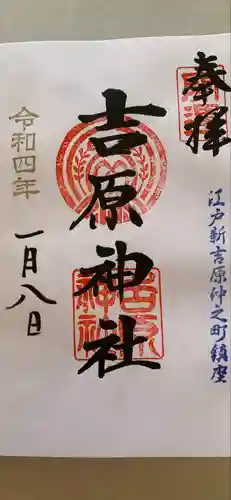 奉拝
江戸新吉原仲之町鎮座
吉原神社
令和四年
一月八日